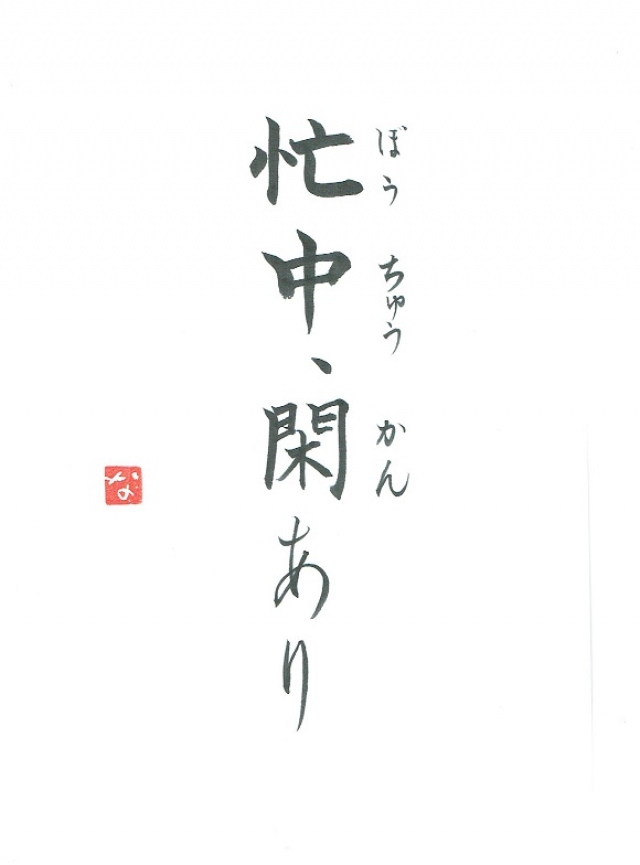 忙中、閑あり
ぼう ちゅう かん
な